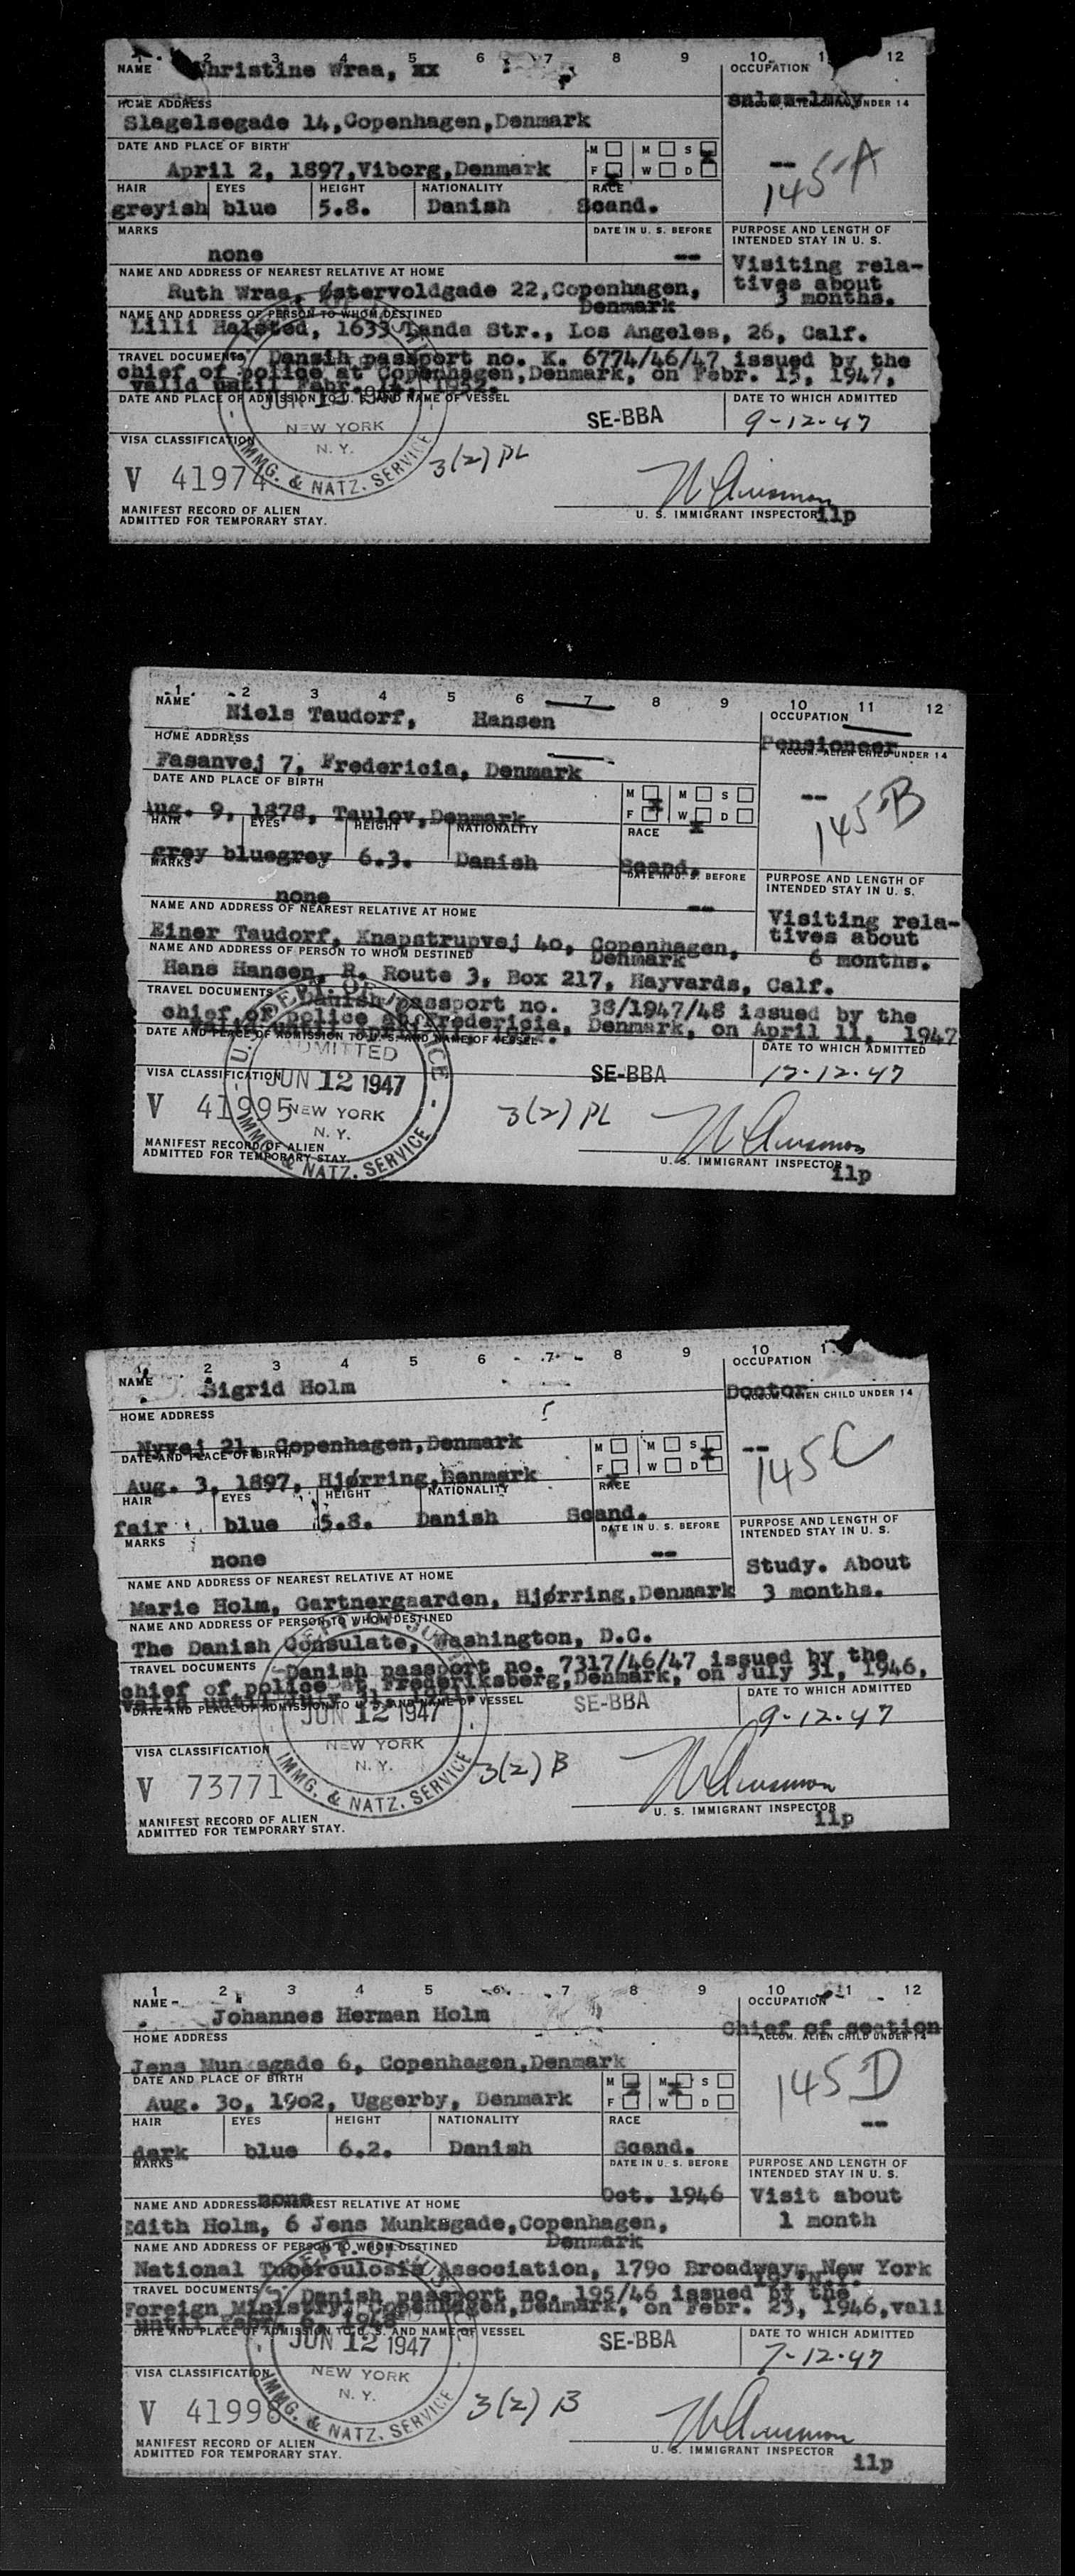 1 2 3 4 5 6 7 8 9 10 1 12
NAME Christine Wraa, xx OCCUPATION
HOME ADDRESS sales-lady UNDER 14
Slagelsegade 14,Copenhagen,Denmark
DATE AND PLACE OF BIRTH M M S
April 2, 1897,Viborg,Denmark F W D
145-A
HAIR EYES HEIGHT NATIONALITY RACE
greyish blue 5.8. Danish Scand.
MARKS DATE IN U. S. BEFORE PURPOSE AND LENGTH OF
INTENDED STAY IN U. S.
none -- Visiting rela-
NAME AND ADDRESS OF NEAREST RELATIVE AT HOME tives about
Ruth Wraa, Østervoldgade 22,Copenhagen, 3 months.
Denmark
NAME AND ADDRESS OF PERSON TO WHOM DESTINED
Lilli Halsted, 1633 Landa Str., Los Angeles, 26, Calf.
TRAVEL DOCUMENTS Dansih passport no. K. 6774/46/47 issued by the
chief of police at Copenhagen,Denmark, on Febr. 15, 1947,
valid until Febr. 1952.
DATE AND PLACE OF ADMISSION TO U. S. AND NAME OF VESSEL DATE TO WHICH ADMITTED
JUN 12 1947 SE-BBA 9-12-47
NEW YORK
N. Y.
VISA CLASSIFICATION
V 41974 3(2) PL
IMMG. & NATZ. SERVICE
MANIFEST RECORD OF ALIEN
ADMITTED FOR TEMPORARY STAY. U. S. IMMIGRANT INSPECTOR ilp
1 2 3 4 5 6 7 8 9 10 11 12
NAME Niels Taudorf, Hansen OCCUPATION
HOME ADDRESS Pensioneer
ACCOM. ALIEN CHILD UNDER 14
Fasanvej 7, Fredericia, Denmark
DATE AND PLACE OF BIRTH M M S
Aug. 9, 1878, Taulov,Denmark F W D
-- 145-B
HAIR EYES HEIGHT NATIONALITY RACE
grey bluegrey 6.3. Danish Scand.
MARKS DATE IN U. S. BEFORE PURPOSE AND LENGTH OF
INTENDED STAY IN U. S.
none -- Visiting rela-
NAME AND ADDRESS OF NEAREST RELATIVE AT HOME tives about
Einer Taudorf, Knapstrupvej 40, Copenhagen, 6 months.
Denmark
NAME AND ADDRESS OF PERSON TO WHOM DESTINED
Hans Hansen, R. Route 3, Box 217, Hayvards, Calf.
TRAVEL DOCUMENTS Danish passport no. 38/1947/48 issued by the
chief of police at Fredericia, Denmark, on April 11, 1947
DATE AND PLACE OF ADMISSION TO U. S. AND NAME OF VESSEL DATE TO WHICH ADMITTED
ADMITTED
JUN 12 1947 SE-BBA 12-12-47
VISA CLASSIFICATION
V 41995 NEW YORK 3(2) PL
N. Y.
IMMG. & NATZ. SERVICE
MANIFEST RECORD OF ALIEN
ADMITTED FOR TEMPORARY STAY. U. S. IMMIGRANT INSPECTOR
ilp
1 2 3 4 5 6 7 8 9 10 1
NAME Sigrid Holm OCCUPATION
HOME ADDRESS Doctor
ACCOM. ALIEN CHILD UNDER 14
Nyvej 21, Copenhagen,Denmark
DATE AND PLACE OF BIRTH M M S
Aug. 3, 1897, Hjørring,Denmark F W D
-- 145C
HAIR EYES HEIGHT NATIONALITY RACE
fair blue 5.8. Danish Scand.
MARKS DATE IN U. S. BEFORE PURPOSE AND LENGTH OF
INTENDED STAY IN U. S.
none -- Study. About
NAME AND ADDRESS OF NEAREST RELATIVE AT HOME 3 months.
Marie Holm, Gartnergaarden, Hjørring,Denmark
NAME AND ADDRESS OF PERSON TO WHOM DESTINED
The Danish Consulate, Washington, D.C.
TRAVEL DOCUMENTS Danish passport no. 7317/46/47 issued by the
chief of police at Frederiksberg,Denmark, on July 31, 1946,
valid until July
DATE AND PLACE OF ADMISSION TO U. S. AND NAME OF VESSEL DATE TO WHICH ADMITTED
JUN 12 1947 SE-BBA 9-12-47
NEW YORK
N. Y.
VISA CLASSIFICATION
V 73771 3(2) B
IMMG. & NATZ. SERVICE
MANIFEST RECORD OF ALIEN
ADMITTED FOR TEMPORARY STAY. U. S. IMMIGRANT INSPECTOR
ilp
1 2 3 4 5 6 7 8 9 10 11 12
NAME Johannes Herman Holm OCCUPATION
HOME ADDRESS Chief of section
ACCOM. ALIEN CHILD UNDER 14
Jens Munksgade 6, Copenhagen,Denmark
DATE AND PLACE OF BIRTH M M S
Aug. 30, 1902, Uggerby, Denmark F W D
145D
HAIR EYES HEIGHT NATIONALITY RACE --
dark blue 6.2. Danish Scand.
MARKS DATE IN U. S. BEFORE PURPOSE AND LENGTH OF
INTENDED STAY IN U. S.
none Oct. 1946 Visit about
NAME AND ADDRESS OF NEAREST RELATIVE AT HOME 1 month
Edith Holm, 6 Jens Munksgade,Copenhagen,
Denmark
NAME AND ADDRESS OF PERSON TO WHOM DESTINED
National Tuberculosis Association, 1790 Broadway, New York
TRAVEL DOCUMENTS Danish passport no. 195/46 issued by the
Foreign Ministry, Copenhagen,Denmark, on Febr. 23, 1946,vali
until Febr. 1948
DATE AND PLACE OF ADMISSION TO U. S. AND NAME OF VESSEL DATE TO WHICH ADMITTED
JUN 12 1947 SE-BBA 7-12-47
NEW YORK
N. Y.
VISA CLASSIFICATION
V 41998 3(2) B
IMMG. & NATZ. SERVICE
MANIFEST RECORD OF ALIEN
ADMITTED FOR TEMPORARY STAY. U. S. IMMIGRANT INSPECTOR
ilp